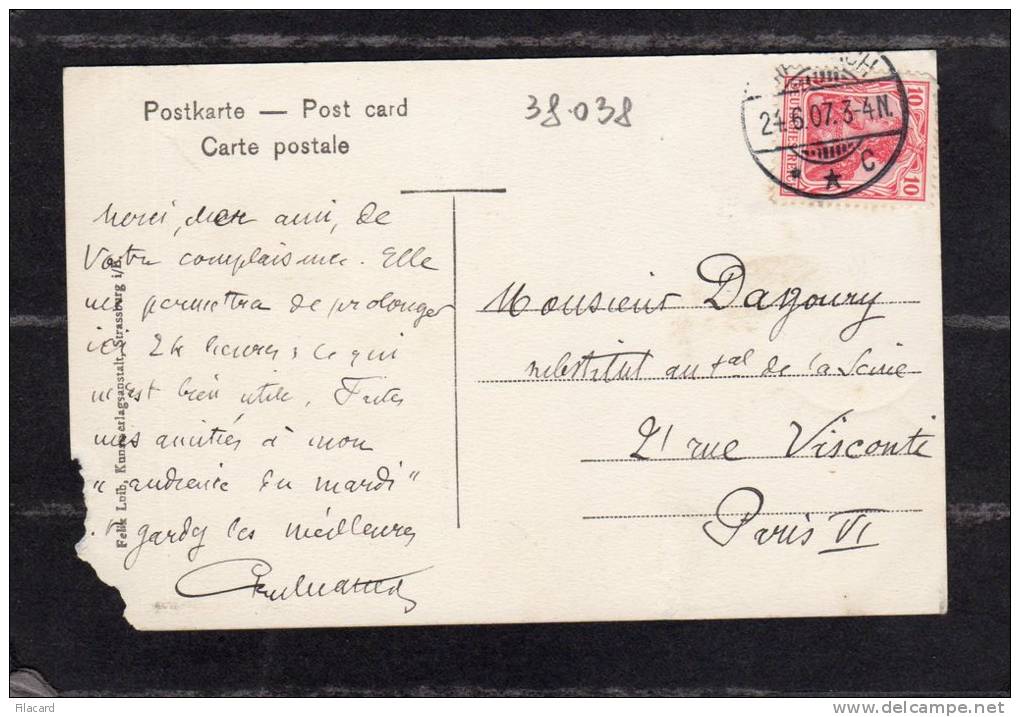 Postkarte — Post card
Carte postale
38.038
24.6.07.3-4N.
C
10
10
Merci, cher ami, de
Votre complaisance. Elle
me permettra de prolonger
ici 24 heures; ce qui
m'est bien utile. Faites
mes amitiés à mon
"audience du mardi"
et gardez les meilleures
Monsieur Dagoury
substitut au tal de la Seine
21 rue Visconti
Paris VI
Felix Luib, Kunstverlagsanstalt, Strassburg i/E.
http://filacard.delcampe.net